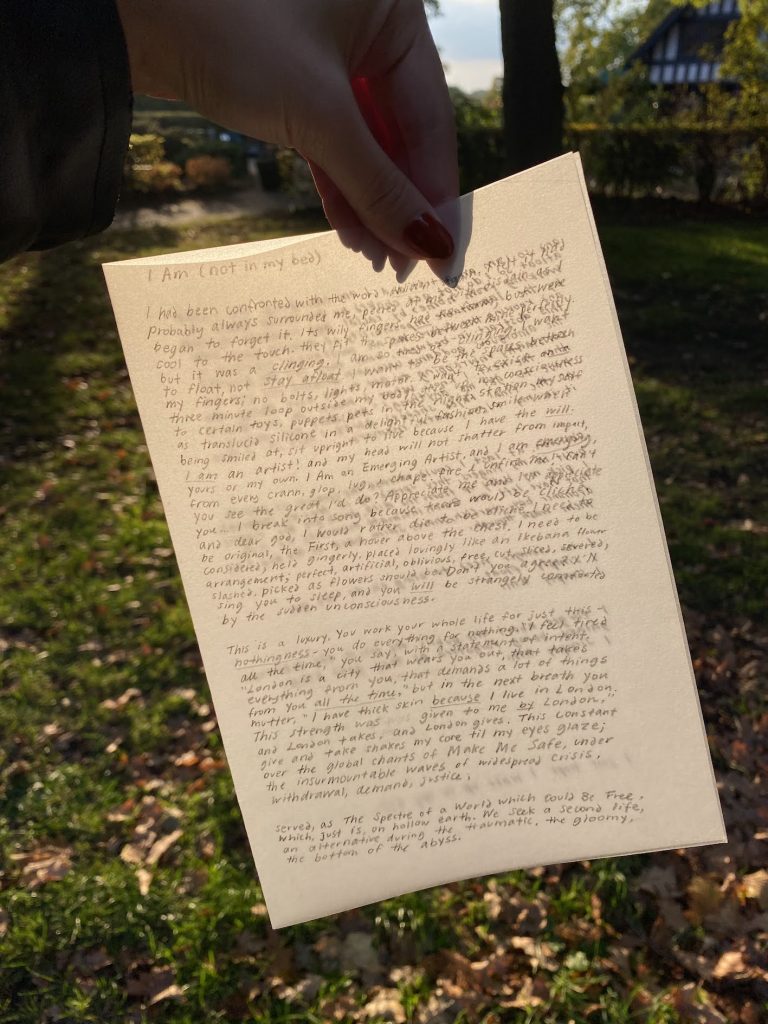 I Am (not in my bed)
I had been confronted with the word
probably always surrounded me,
began to forget it. Its wily fingers,
cool to the touch. they fit the
but it was a clinging. I am so
to float, not stay afloat I want to be the
my fingers; no bolts, lights, motor.
three minute loop outside my body
to certain toys, puppets, pets in the night. Station myself
as translucid silicone in a delightful fashion, smile when
being smiled at, sit upright to live because I have the will.
I am an artist! and my head will not shatter from impact,
yours or my own. I Am an Emerging Artist, and I am emerging,
from every crann, glop,
you see the great I'd do? Appreciate me and I'll appreciate
you... I break into song because tears would be cliché,
and dear god, I would rather die to be cliché I need to
be original, the First, a hover above the chest. I need to be
considered, held gingerly, placed lovingly like an Ikebana flower
arrangement; perfect, artificial, oblivious, free, cut, sliced, severed,
slashed, picked as flowers should be. Don't you agree? I'll
sing you to sleep, and you will be strangely comforted
by the sudden unconsciousness.
This is a luxury. You work your whole life for just this -
nothingness - you do everything for nothing. "I feel tired
all the time," you say, with a statement of intent.
"London is a city that wears you out, that takes
everything from you, that demands a lot of things
from you all the time," but in the next breath you
mutter, "I have thick skin because I live in London.
This strength was given to me by London,"
and London takes, and London gives. This constant
give and take shakes my core til my eyes glaze;
over the global chants of Make Me Safe, under
the insurmountable waves of widespread crisis,
withdrawal, demand, justice;
served, as The Spectre of a World which Could Be Free,
which, just is, on hollow earth. We seek a second life,
an alternative during the traumatic, the gloomy,
the bottom of the abyss.